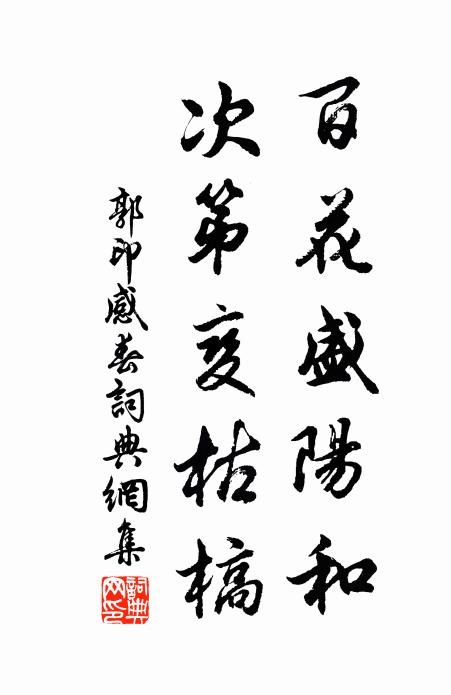 百花盛陽和
次第变枯槁
郭印感春詞典網集
詞典网印